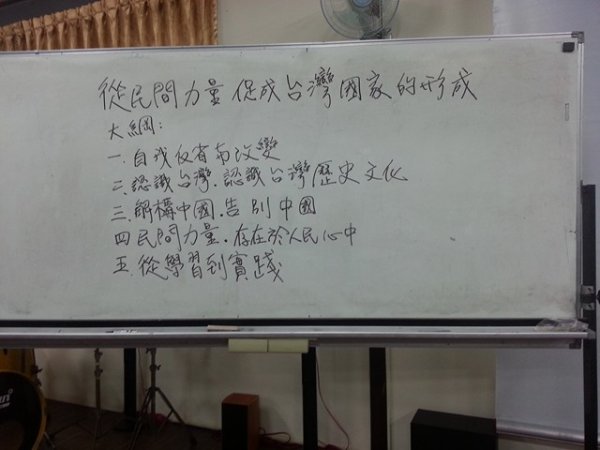 從民間力量促成台灣國家的形成
大綱:
一.自我反省而改變
二.認識台灣.認識台灣歷史文化
三.解構中國.告別中國
四民間力量.存在於人民心中
五.從學習到實踐